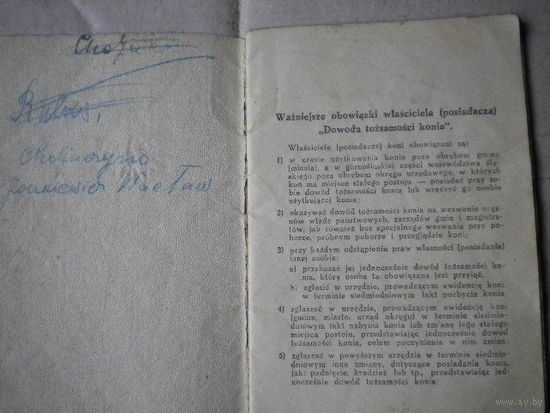 Ważniejsze obowiązki właściciela (posiadacza)
„Dowodu tożsamości konia".
Właściciele (posiadacze) koni obowiązani są:
1) w czasie użytkowania konia poza obrębem gminy
(miasta), a w górnośląskiej części województwa ślą-
skiego poza obrębem okręgu urzędowego, w których
koń ma miejsce stałego postoju — posiadać przy so-
bie dowód tożsamości konia lub wręczyć go osobie
użytkującej konia;
2) okazywać dowód tożsamości konia na wezwanie orga-
nów władz państwowych, zarządów gmin i magistra-
tów, jak również bez specjalnego wezwania przy po-
borze, próbnym poborze i przeglądzie koni;
3) przy każdym odstąpieniu praw własności (posiadania)
innej osobie:
a) przekazać jej jednocześnie dowód tożsamości ko-
nia, który osoba ta obowiązana jest przyjąć,
b) zgłosić w urzędzie, prowadzącym ewidencję koni
w terminie siedmiodniowym fakt pozbycia konia
4) zgłaszać w urzędzie, prowadzącym ewidencję koni
(gmina, miasto, urząd okręgu) w terminie siedmio-
dniowym fakt nabycia konia lub zmianę jego stałego
miejsca postoju, przedstawiając jednocześnie dowód
tożsamości konia, celem poczynienia w nim zmian;
5) zgłaszać w powyższym urzędzie w terminie siedmio-
dniowym inne zmiany, dotyczące posiadania konia,
jak: padnięcie, kradzież lub tp., przedstawiając jed-
nocześnie dowód tożsamości konia
www.ay.by